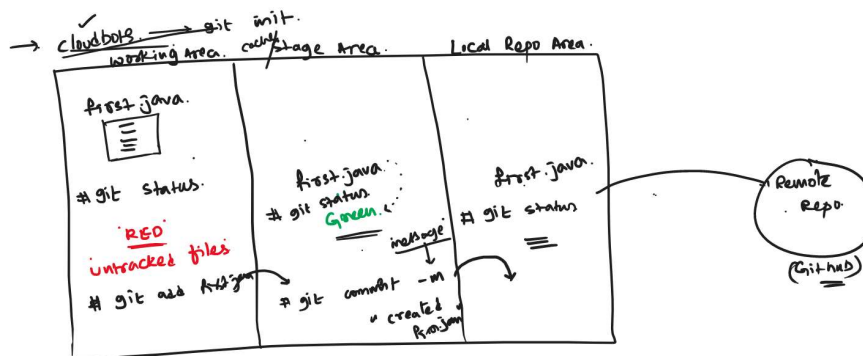 → cloudbots. → git init.
working Area.
cache/stage Area.
Local Repo Area.
first.java.
# git status.
"RED"
untracked files
# git add first.java
first.java.
# git status
Green.
message
# git commit -m
" created
first.java"
first.java.
# git status
Remote
Repo.
(GitHub)